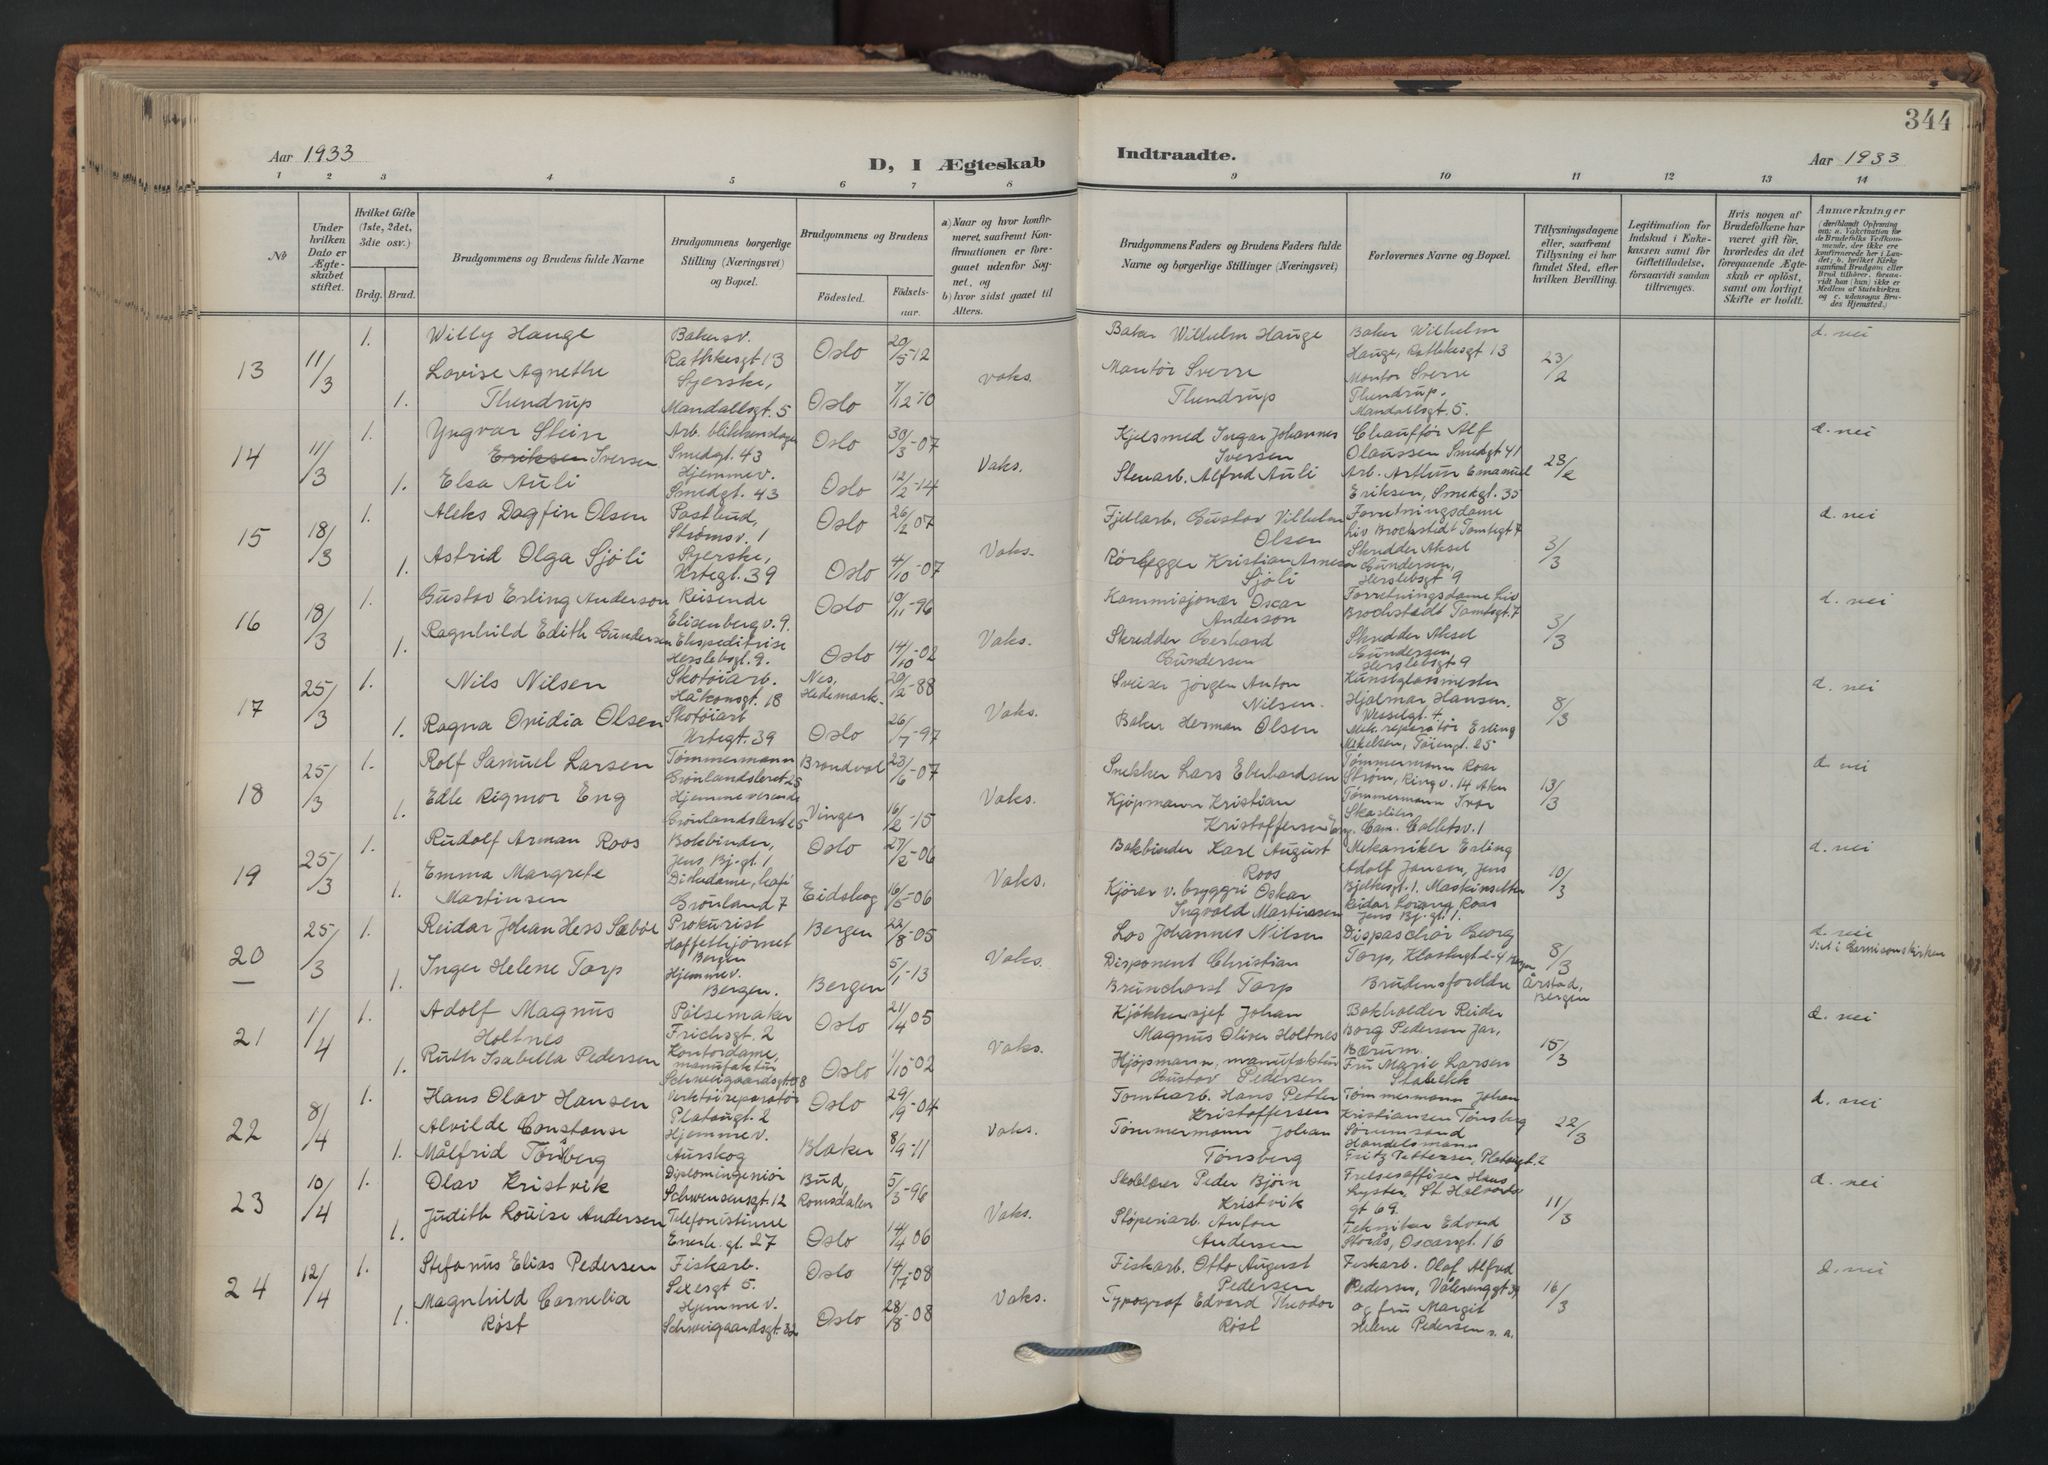 344
Aar 1933
D, I Ægteskab
Indtraadte.
Aar 1933
1 2 3 4 5 6 7 8 9 10 11 12 13 14
№
Under hvilken Dato er Ægteskabet stiftet.
Hvilket Gifte (1ste, 2det, 3die osv.)
Brdg. Brud.
Brudgommens og Brudens fulde Navne
Brudgommens borgerlige Stilling (Næringsvei) og Bopæl.
Brudgommens og Brudens
Fødested.
Fødselsaar.
a) Naar og hvor konfirmeret, saafremt Konfirmationen er foregaaet udenfor Sognet, og
b) hvor sidst gaaet til Alters.
Brudgommens Faders og Brudens Faders fulde Navne og borgerlige Stillinger (Næringsvei)
Forlovernes Navne og Bopæl.
Tillysningsdagene eller, saafremt Tillysning ei har fundet Sted, efter hvilken Bevilling.
Legitimation for Indskud i Enkekassen samt for Giftetilladelse, forsaavidt saadan tiltrænges.
Hvis nogen af Brudefolkene har været gift før, hvorledes da det foregaaende Ægteskab er opløst, samt om lovligt Skifte er holdt.
Anmærkninger
(deriblandt Oplysning om: a. Vaksination for de Brudefolks Vedkommende, der ikke ere konfirmerede her i Landet; b. hvilket Kirkesamfund Brudgom eller Brud tilhører, forsaavidt han (hun) ikke er Medlem af Statskirken og c. udensogns Brudes Hjemsted.)
13 11/3 1. Willy Hauge Bakersv. Rathkesgt 13 Oslo 20/5-12
1. Lovise Agnethe Thendrup Syerske, Mandallsgt. 5 Oslo 7/12-10 vaks.
Baker Wilhelm Hauge
Montør Sverre Thendrup
Baker Wilhelm Hauge, Rathkesgt 13
Montør Sverre Thendrup, Mandallsgt 5.
23/2 d. nei
14 11/3 1. Yngvar Stein Iversen Arb. blikkenslager Smedgt. 43 Oslo 30/3-07
1. Elsa Auli Hjemmev. Smedgt. 43 Oslo 12/2-14 Vaks.
Kjelsmed Ingar Johannes Iversen
Stenarb. Alfred Auli
Chauffør Alf Olaussen Smedgt 41
Arb. Arthur Emanuel Eriksen, Smedgt. 35
23/2 d. nei
15 18/3 1. Aleks Dagfin Olsen Postbud, Strømsv. 1 Oslo 26/2 07
1. Astrid Olga Sjöli Syerske, Urtegt. 39 Oslo 4/10-07 Vaks.
Fjellarb. Gustav Vilhelm Olsen
Rørlegger Kristian Arnesen Sjöli
Forretningsdame Liv Brochstedt Tomtegt 7
Skredder Aksel Gundersen, Herslebsgt 9
3/3 d. nei
16 18/3 1. Gustav Erling Anderson Reisende Elisenberg v. 9. Oslo 19/11-96
1. Ragnhild Edith Gundersen Ekspeditrise Herslebsgt. 9. Oslo 14/10-02 Vaks.
Kommisjonær Oscar Anderson
Skredder Gerhard Gundersen
Forretningsdame Liv Brochstedt Tomtegt. 7
Skredder Aksel Gundersen Herslebsgt 9
3/3 d. nei
17 25/3 1. Nils Nilsen Skotøiarb. Håkonsgt. 18 Nes, Hedemark. 20/12-88
1. Ragna Ovidia Olsen Skotøiarb Urtegt. 39 Oslo 26/7-97 Vaks.
Sveiser Jörgen Anton Nilsen.
Baker Herman Olsen
Kunstglassmester Hjalmar Hansen. Wesselgt. 4
Mek. reparatör Erling Mikelsen, Töiengt. 25
8/3 d. nei
18 25/3 1. Rolf Samuel Larsen Tømmermann Grönlandsleret 25 Brandval 23/6-07
1. Edle Rigmor Eng Hjemmeværende Grönlandsleret 25 Vinger 16/2-15 Vaks.
Snekker Lars Eberhardsen
Kjöpmann Kristian Kristoffersen Eng.
Tømmermann Roar Ström, Ring v. 14 Aker
Tømmermann Ivar Skaslien Cam. Colletsv. 1
13/3 d. nei
19 25/3 1. Rudolf Arman Roos Bokbinder, Jens Bj. gt. 1 Oslo 27/2-06
1. Emma Margrete Martinsen Diskedame, Café Grönland 7 Eidskog 16/5-06 Vaks.
Bokbinder Karl August Roos
Kjörer v. bryggri Oskar Ingvald Martinsen
Mekaniker Erling Adolf Jansen, Jens Bjelkesgt. 1.
Maskinsetter Reidar Lorang Roos Jens Bj. gt 1.
10/3 d. nei
20 25/3 1. Reidar Johan Hess Sæbøe Prokurist Bergen Bergen 22/8-05
1. Inger Helene Torp Hjemmev. Bergen. Bergen 5/1-13 Vaks.
Los Johannes Nilsen
Disponent Christian Brunchorst Torp
Dispaschör Georg Torp, Klostergt 2-4 Bergen
Brudens foreldre
8/3 Årstad, Bergen d. nei Viet i Garnisonskirken
21 1/4 1. Adolf Magnus Holtnes Pölsemaker Frichsgt. 2 Oslo 21/4 05
1. Ruth Isabella Pedersen Kontordame, manufaktur Schweigaardsgt. 98 Oslo 1/10-02 Vaks.
Kjøkkensjef Johan Magnus Oliver Holtnes
Kjöpmann, manufaktur Gustav Pedersen
Bokholder Reidar Borg Pedersen Jar, Bærum.
Fru Marie Larsen Stabekk
15/3 d. nei
22 8/4 1. Hans Olav Hansen Verktöireparatör Platougt. 2 Oslo 29/9-04
1. Alvilde Constanse Målfrid Tönsberg Hjemmev. Aurskog Blaker 8/9-11 Vaks.
Tomtearb. Hans Petter Kristoffersen
Tømmermann Johan Tönsberg
Tømmermann Johan Kristiansen Tönsberg Sørumsand
Handelsmann Fritz Pettersen, Platougt. 2
22/3 d. nei
23 10/4 1. Olav Kristvik Diplomingeniör Schwensensgt. 12 Bud, Romsdalen 5/3-96
1. Judith Louise Andersen Telefonistinne Enerh. gt. 27 Oslo 14/4 06 Vaks.
Skolelærer Peder Björn Kristvik
Stöperiarb. Anton Andersen
Frelsesofficer Hans Lyster, St Halvards gt 69.
Tekniker Edvard Storås, Oscarsgt. 16
11/3 d. nei
24 12/4 1. Stefanus Elias Pedersen Fiskarb. Sexesgt 5. Oslo 14/7-08
1. Magnhild Cornelia Röst Hjemmev. Schweigaardsgt. 32 Oslo 28/8-08 Vaks.
Fiskarb. Otto August Pedersen
Typograf Edvard Theodor Röst
Fiskarb. Olaf Alfred Pedersen, Vålerenggt 39
og fru Margit Helene Pedersen s. a.
16/3 d. nei